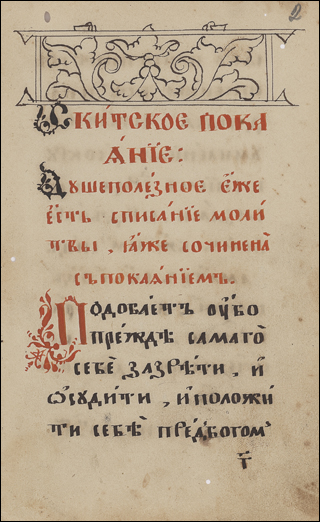 2
Ски́тское пока
ѧ́нїе:
Душеполе́зное е́же
е́сть списа́нїе моли́
твы, ꙗ́же сочинена̀
съпокаѧ́нїемъ.
Подоба́етъ оу҆́бо
пре́жде самаго̀
себѐ зазрѣ́ти, и҆
ѡ҆суди́ти, и҆положи́
ти себѐ предбогомъ